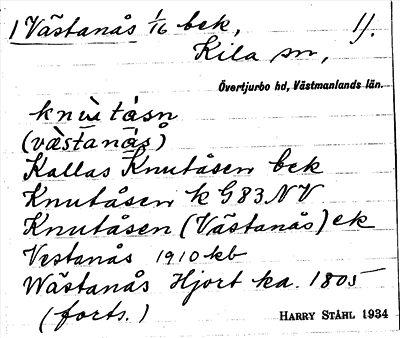 1 Västanås 1/16 bek, 1).
Kila sn,
Övertjurbo hd, Västmanlands län.
knùtåsn
(vàstanås)
Kallas Knutåsen bek
Knutåsen k G83 NV
Knutåsen (Västanås) ek
Vestanås 1910 kb
Wästanås Hjort ka. 1805
(forts.)
HARRY STÅHL 1934